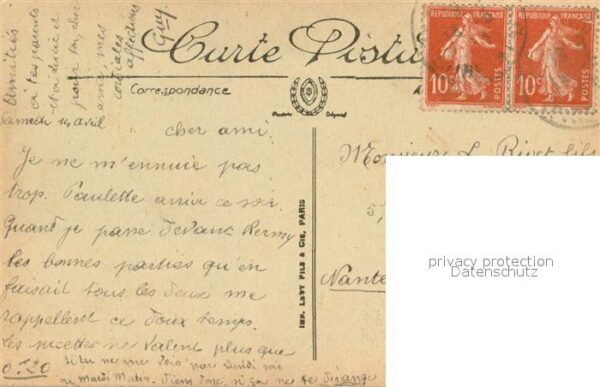 Carte Posta
Correspondance
REPUBLIQUE FRANÇAISE
10c POSTES
REPUBLIQUE FRANÇAISE
10c POSTES
Amitiés
à tes parents
et pour toi, cher
ami, mes
cordiales
affections
Guy
Samedi 14 avril
cher ami.
Je ne m'ennuie pas
trop. Paulette arrive ce soir.
Quand je passe devant
les bonnes parties qu'on
faisait tous les deux me
rappellent ce doux temps.
Les ne valent plus que
0 F 20
Si tu ne me vois pas Lundi soir
ou Mardi Matin. Viens donc si ça ne te dérange
IMP. LEVY FILS & CIE, PARIS
Monsieur L. Rivet fils
Nante
privacy protection
Datenschutz